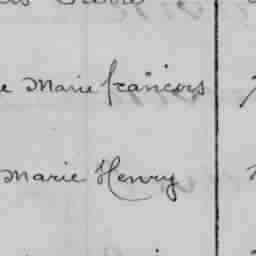 e Marie françois
Marie Henry